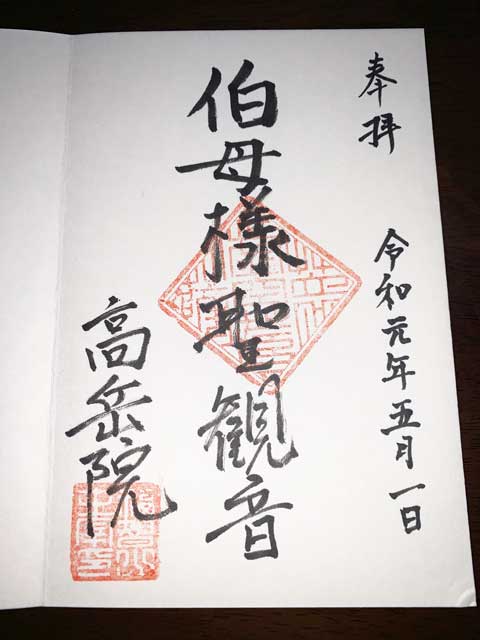 奉拝
令和元年五月一日
伯母様聖観音
高岳院